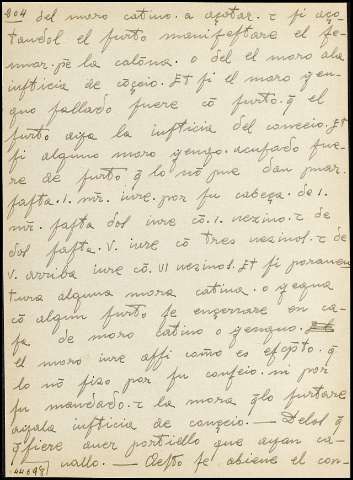 404 del moro catiuo. a açotar. τ si aço-
tandol el furto manifestare el se-
nnor. pe͂ la caloña. o del el moro ala
iusticia de co͂çeio. Et si el moro yen-
guo fallado fuere co͂ furto. q̃ el
furto aya la iusticia del conceio. Et
si alguno moro yengo. acusado fue-
re de furto q̃ lo no͂ pue dan prouar.
fasta .I. mr̃. iure. por su cabeça. de I.
mr̃. fasta dos iure co͂ .I. uezino. τ de
dos fasta .V. iure co͂ tres uezinos. τ de
V. arriba iure co͂ VI uezinos. Et si porauen
tura alguna mora catiua. o yegua
co͂ algun furto se enzerrare en ca-
sa de moro catiuo o yenguo.
el moro iure assi como es escp̃to. q̃
lo no͂ fizo por su conseio. ni por
su mandado. τ la mora q̃ lo furtare
ayala iusticia de conçeio. — Delos q̃
q̃siere auer portiello que ayan ca-
uallo. — Aesto se abiene el con-